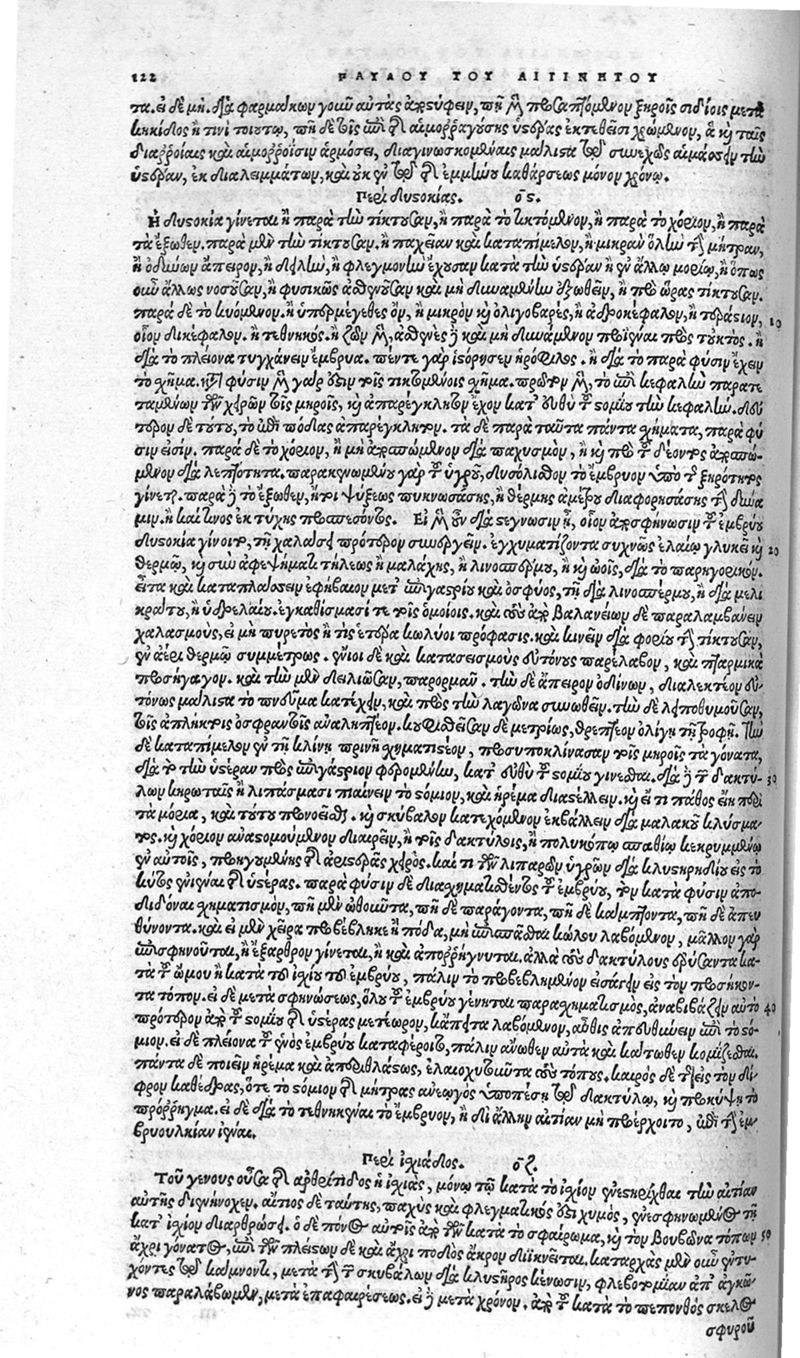 122 ΠΑΥΛΟΥ ΤΟΥ ΑΙΓΙΝΗΤΟΥ
τα. εἰ δὲ μὴ. διὰ φαρμάκων γοῦν αὐτὰς ἀποστύφειν, πῆ μὲν προσαπτόμενον ξηροῖς σιδίοις μετὰ
κηκίδος ἤ τινι τοιούτῳ, πῆ δὲ τοῖς ἐπὶ τῆς αἱμορραγούσης ὑστέρας ἐκτεθεῖσι χρώμενον, ἃ καὶ ταῖς
διαρροίαις καὶ αἱμορροΐσιν ἁρμόσει, διαγινωσκομέναις μάλιστα τῷ συνεχῶς αἱμάσσειν τὴν
ὑστέραν, ἐκ διαλειμμάτων, καὶ οὐκ ἐν τῷ τῆς ἐμμήνου καθάρσεως μόνον χρόνῳ.
Περὶ δυστοκίας. οϛ.
Ἡ δυστοκία γίνεται ἢ παρὰ τὴν τίκτουσαν, ἢ παρὰ τὸ τικτόμενον, ἢ παρὰ τὸ χόριον, ἢ παρὰ
τὰ ἔξωθεν. παρὰ μὲν τὴν τίκτουσαν. ἢ παχεῖαν καὶ καταπίμελον, ἢ μικρὰν ὅλην τὴν μήτραν,
ἢ ὀδυνῶν ἄπειρον, ἢ δειλὴν, ἢ φλεγμονὴν ἔχουσαν κατὰ τὴν ὑστέραν ἢ ἐν ἄλλῳ μορίῳ, ἢ ὅπως
οὖν ἄλλως νοσοῦσαν, ἢ φυσικῶς ἀσθενοῦσαν καὶ μὴ δυναμένην ἐξωθεῖν, ἢ πρὸ ὥρας τίκτουσαν.
παρὰ δὲ τὸ κυόμενον. ἢ ὑπερμέγεθες ὂν, ἢ μικρὸν καὶ ὀλιγοβαρὲς, ἢ ἁδροκέφαλον, ἢ τεράστιον, 10
οἷον δικέφαλον. ἢ τεθνηκὸς. ἢ ζῶν μὲν, ἀσθενὲς δὲ καὶ μὴ δυνάμενον προϊέναι πρὸς τοὐκτὸς. ἢ
διὰ τὸ πλείονα τυγχάνειν ἔμβρυα. πέντε γὰρ ἱστόρησεν ἡρόφιλος. ἢ διὰ τὸ παρὰ φύσιν ἔχειν
τὸ σχῆμα. κατὰ φύσιν μὲν γάρ ἐστιν τοῖς τικτομένοις σχῆμα. πρῶτον μὲν, τὸ ἐπὶ κεφαλὴν παρατε
ταμένων τῶν χειρῶν τοῖς μηροῖς, καὶ ἀπαρέγκλιτον ἔχον κατ' εὐθὺ τοῦ στομίου τὴν κεφαλὴν. δεύ
τερον δὲ τούτου, τὸ ἐπὶ πόδας ἀπαρέγκλιτον. τὰ δὲ παρὰ ταῦτα πάντα σχήματα, παρὰ φύ
σιν εἰσίν. παρὰ δὲ τὸ χόριον, ἢ μὴ διασπώμενον διὰ παχυσμὸν, ἢ καὶ πρὸ τοῦ δέοντος διασπώ-
μενον διὰ λεπτότητα. παρακενωμένου γὰρ τοῦ ὑγροῦ, δυσόλισθον τὸ ἔμβρυον ὑπὸ τῆς ξηρότητος
γίνεται. παρὰ δὲ τὸ ἔξωθεν, ἤτοι ψύξεως πυκνωσάσης, ἢ θέρμης ἀμέτρου διαφορησάσης τὴν δύνα
μιν. ἢ καί τινος ἐκ τύχης προσπεσόντος. Εἰ μὲν οὖν διὰ στέγνωσιν ᾖ, οἷον ἀποσφήνωσιν τοῦ ἐμβρύου
δυστοκία γίνοιτο, τῇ χαλάσει πρότερον συνεργεῖν. ἐγχυματίζοντα συχνῶς ἐλαίῳ γλυκεῖ καὶ 20
θερμῷ, καὶ σὺν ἀφεψήματι τήλεως ἢ μαλάχης, ἢ λινοσπέρμου, ἢ καὶ ὠοῖς, διὰ τὸ παρηγορικόν.
εἶτα καὶ καταπλάσσειν ἐφήβαιον μετ' ἐπιγαστρίου καὶ ὀσφύος, τῇ διὰ λινοσπέρμου, ἢ διὰ μελι
κράτου, ἢ ὑδρελαίου. ἐγκαθίσμασί τε τοῖς ὁμοίοις. καὶ τοὺς ἀπὸ βαλανείων δὲ παραλαμβάνειν
χαλασμοὺς, εἰ μὴ πυρετὸς ἤ τις ἑτέρα κωλύοι πρόφασις. καὶ κινεῖν διὰ φορείου τὴν τίκτουσαν,
ἐν ἀέρι θερμῷ συμμέτρως. ἔνιοι δὲ καὶ κατασεισμοὺς εὐτόνους παρέλαβον, καὶ πταρμικὰ
προσήγαγον. καὶ τὴν μὲν δειλιῶσαν, παρορμᾶν. τὴν δὲ ἄπειρον ὀδίνων, διαλεκτέον εὐ-
τόνως μάλιστα τὸ πνεῦμα κατέχειν, καὶ πρὸς τὴν λαγόνα συνωθεῖν. τὴν δὲ λειποθυμοῦσαν,
τοῖς ἀπλήκτοις ὀσφραντοῖς ἀναληπτέον. κουφισθεῖσαν δὲ μετρίως, θρεπτέον ὀλίγῃ τῇ τροφῇ. Τὴν
δὲ καταπίμελον ἐν τῇ κλίνῃ πρηνῆ σχηματιστέον, προσυποκλίνασαν τοῖς μηροῖς τὰ γόνατα,
διὰ τὸ τὴν ὑστέραν πρὸς ἐπιγάστριον φερομένην, κατ' εὐθὺ τοῦ στομίου γίνεσθαι. διὰ δὲ τῶν δακτύ- 30
λων κηρωταῖς ἢ λιπάσμασι πιαίνειν τὸ στόμιον, καὶ ἠρέμα διαστέλλειν. καὶ εἴ τι πάθος εἴη περὶ
τὰ μόρια, καὶ τούτου προνοεῖσθαι. καὶ σκύβαλον κατεχόμενον ἐκβάλλειν διὰ μαλακοῦ κλύσμα-
τος. καὶ χόριον ἀναστομούμενον διαιρεῖν, ἢ τοῖς δακτύλοις, ἢ πολυκόπῳ σπαθίῳ κεκρυμμένῳ
ἐν αὐτοῖς, προηγουμένης τῆς ἀριστερᾶς χειρός. καί τι τῶν λιπαρῶν ὑγρῶν διὰ κλυστηριδίου εἰς τὸ
κύτος ἐνιέναι τῆς ὑστέρας. παρὰ φύσιν δὲ διασχηματισθέντος τοῦ ἐμβρύου, τὸν κατὰ φύσιν ἀπο-
διδόναι σχηματισμὸν, πῆ μὲν ὠθοῦντα, πῆ δὲ παράγοντα, πῆ δὲ κάμπτοντα, πῆ δὲ ἀπευ
θύνοντα. καὶ εἰ μὲν χεῖρα προβέβληκε ἢ πόδα, μὴ ἐπισπᾶσθαι κώλου λαβόμενον, μᾶλλον γὰρ
ἐπισφηνοῦται, ἢ ἔξαρθρον γίνεται, ἢ καὶ ἀπορρήγνυται. ἀλλὰ τοὺς δακτύλους ἐρείσαντα κα-
τὰ τοῦ ὤμου ἢ κατὰ τοῦ ἰσχίου τοῦ ἐμβρύου, πάλιν τὸ προβεβλημένον εἰσάγειν εἰς τὸν προσήκον-
τα τόπον. εἰ δὲ μετὰ σφηνώσεως, ὅλου τοῦ ἐμβρύου γένηται παρασχηματισμὸς, ἀναβιβάζειν αὐτὸ 40
πρότερον ἀπὸ τοῦ στομίου τῆς ὑστέρας μετέωρον, κἄπειτα λαβόμενον, αὖθις ἀπευθύνειν ἐπὶ τὸ στό-
μιον. εἰ δὲ πλείονα τοῦ ἑνὸς ἐμβρύου καταφέροιτο, πάλιν ἄνωθεν αὐτὰ καὶ κάτωθεν κομίζεσθαι.
πάντα δὲ ποιεῖν ἠρέμα καὶ ἀποθλίβως, ἐλαιοχυτοῦντα τοὺς τόπους. καιρὸς δὲ τῆς εἰς τὸν δί-
φρον καθέδρας, ὅτε τὸ στόμιον τῆς μήτρας ἀνεῳγὸς ὑποπέσῃ τῷ δακτύλῳ, καὶ προκύψῃ τὸ
πρόρρηγμα. εἰ δὲ διὰ τὸ τεθνηκέναι τὸ ἔμβρυον, ἢ δι' ἄλλην αἰτίαν μὴ προέρχοιτο, ἐπὶ τὴν ἐμ-
βρυουλκίαν ἰέναι.
Περὶ ἰσχιάδος. οζ.
Τοῦ γένους οὖσα τῆς ἀρθρίτιδος ἡ ἰσχιὰς, μόνῳ τῷ κατὰ τὸ ἰσχίον ἐνεστηρίχθαι τὴν αἰτίαν
αὐτῆς διενήνοχεν. αἴτιος δὲ ταύτης, παχὺς καὶ φλεγματικός ἐστι χυμὸς, ἐνεσφηνωμένος τῇ
κατ' ἰσχίον διαρθρώσει. ὁ δὲ πόνος αὐτοῖς ἀπὸ τῶν κατὰ τὸ σφαίρωμα, καὶ τὸν βουβῶνα τόπων 50
ἄχρι γόνατος, ἐπὶ τῶν πλείστων δὲ καὶ ἄχρι ποδὸς ἄκρου διϊκνεῖται. καταρχὰς μὲν οὖν ἐντυ-
χόντες τῷ κάμνοντι, μετὰ τὴν τῶν σκυβάλων διὰ κλυστῆρος κένωσιν, φλεβοτομίαν ἀπ' ἀγκῶ-
νος παραλάβωμεν, μετὰ ἐπαφαιρέσεως. εἰ δὲ μετὰ χρόνον. ἀπὸ τοῦ κατὰ τὸ πεπονθὸς σκέλος
σφυροῦ